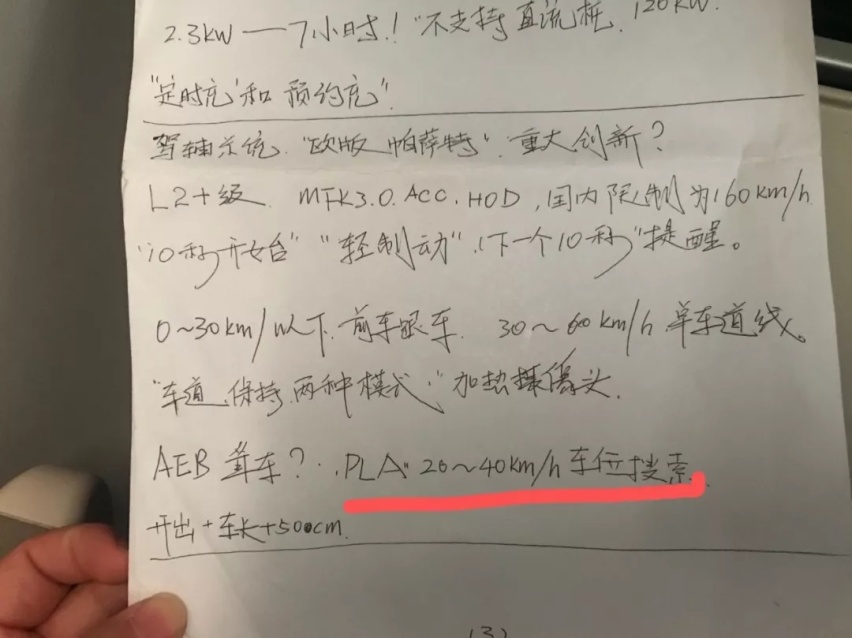 2.3kW — 7小时！"不支持直流桩、120kW.
"定时充"和预约充".
驾辅系统."欧版帕萨特".重大创新？
L2+级. MFK3.0. ACC. HOD, 国内限制为160km/h
"10秒开始" "轻制动" (下一个10秒"提醒。
0~30km/h以下.前车跟车. 30~60km/h单车道线。
"车道.保持.两种模式."加热摄像头.
AEB 踅车？. PLA" 20~40km/h车位搜索.
开出+车长+50cm.
(3)